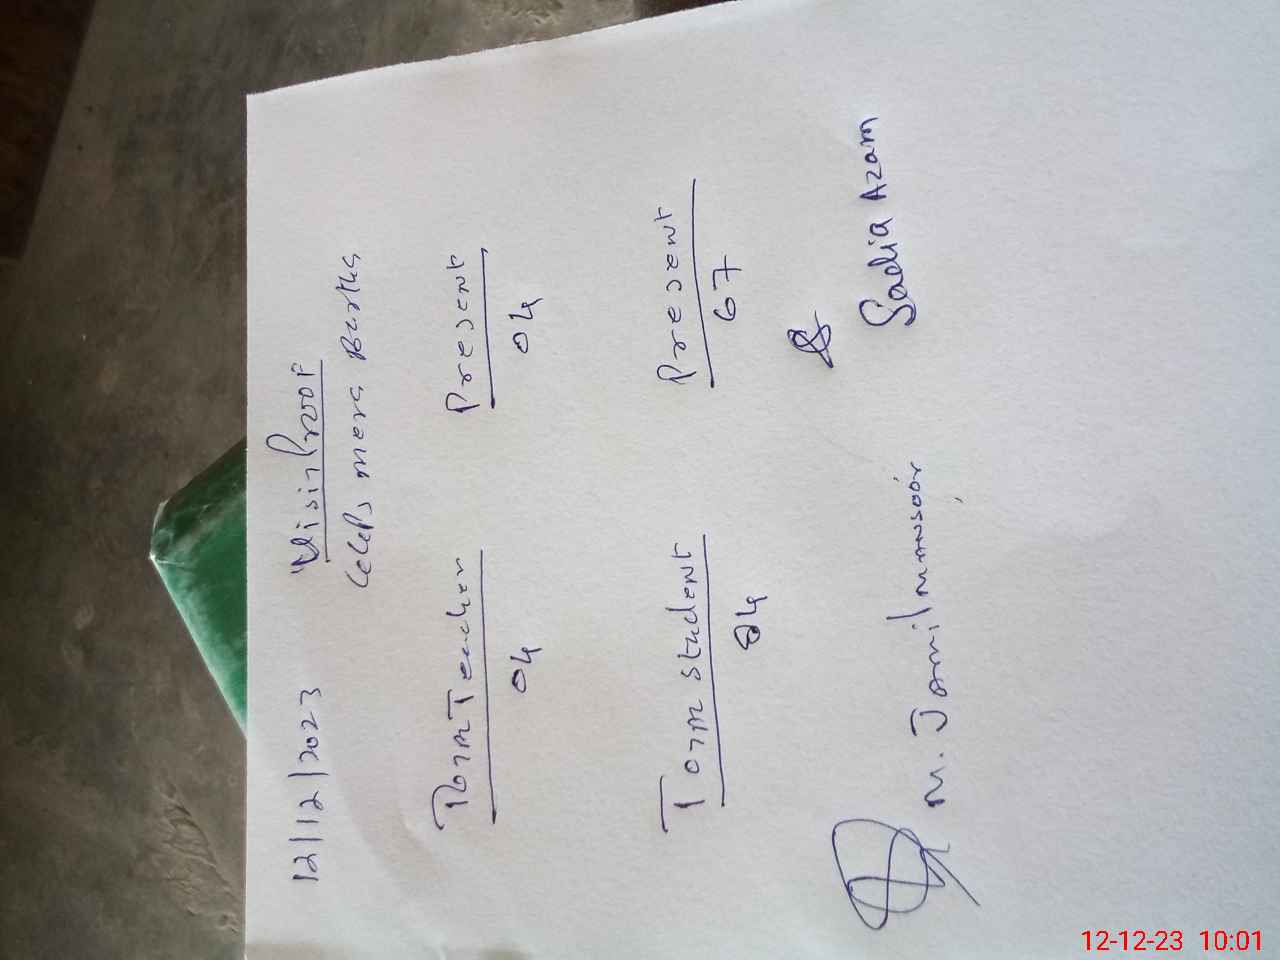 12/12/2023 Visit Proof
GGPS mera Bertha
Torm Teacher Present
04 04
Torm Student Present
84 67
M. Jamil Mansoor Sadia Azam
12-12-23 10:01